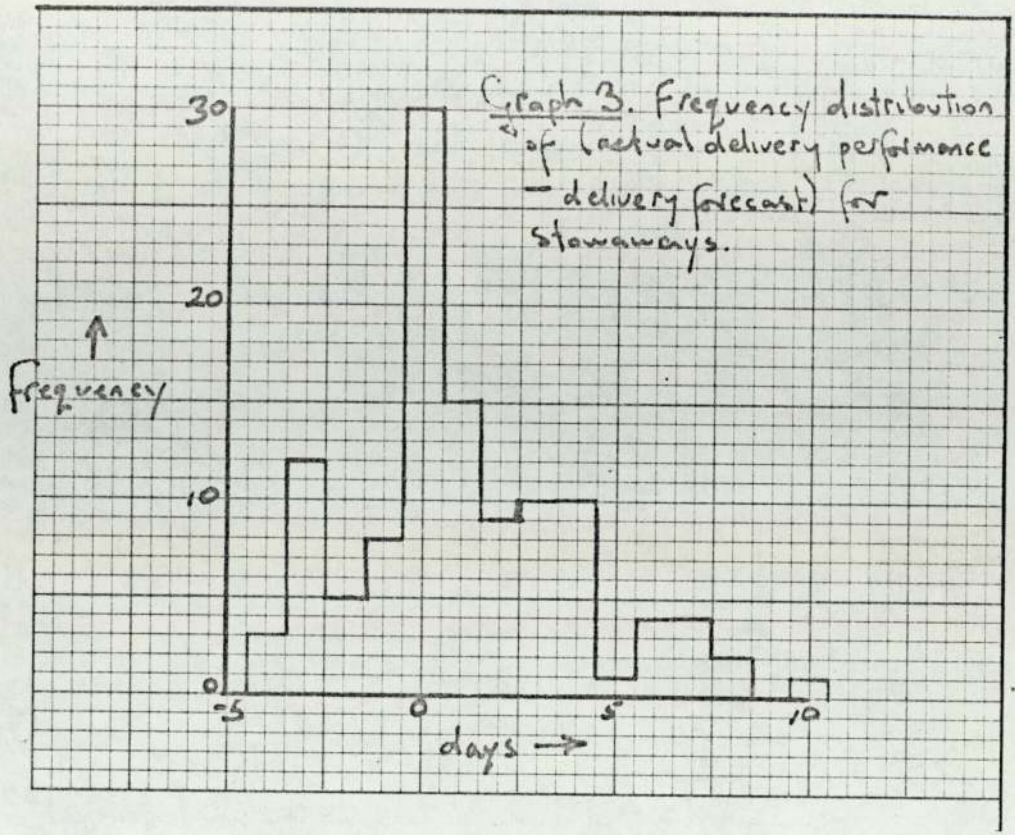 Graph 3. Frequency distribution
of (actual delivery performance
— delivery forecast) for
stowaways.
30
20
10
0
↑
Frequency
-5 0 5 10
days →